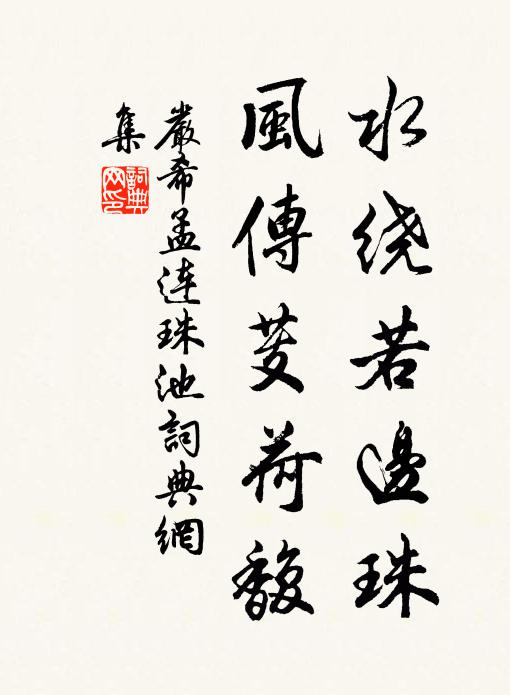 水绕若邊珠
風傳芰荷馥
嚴希孟連珠池詞典網
集
詞典网印